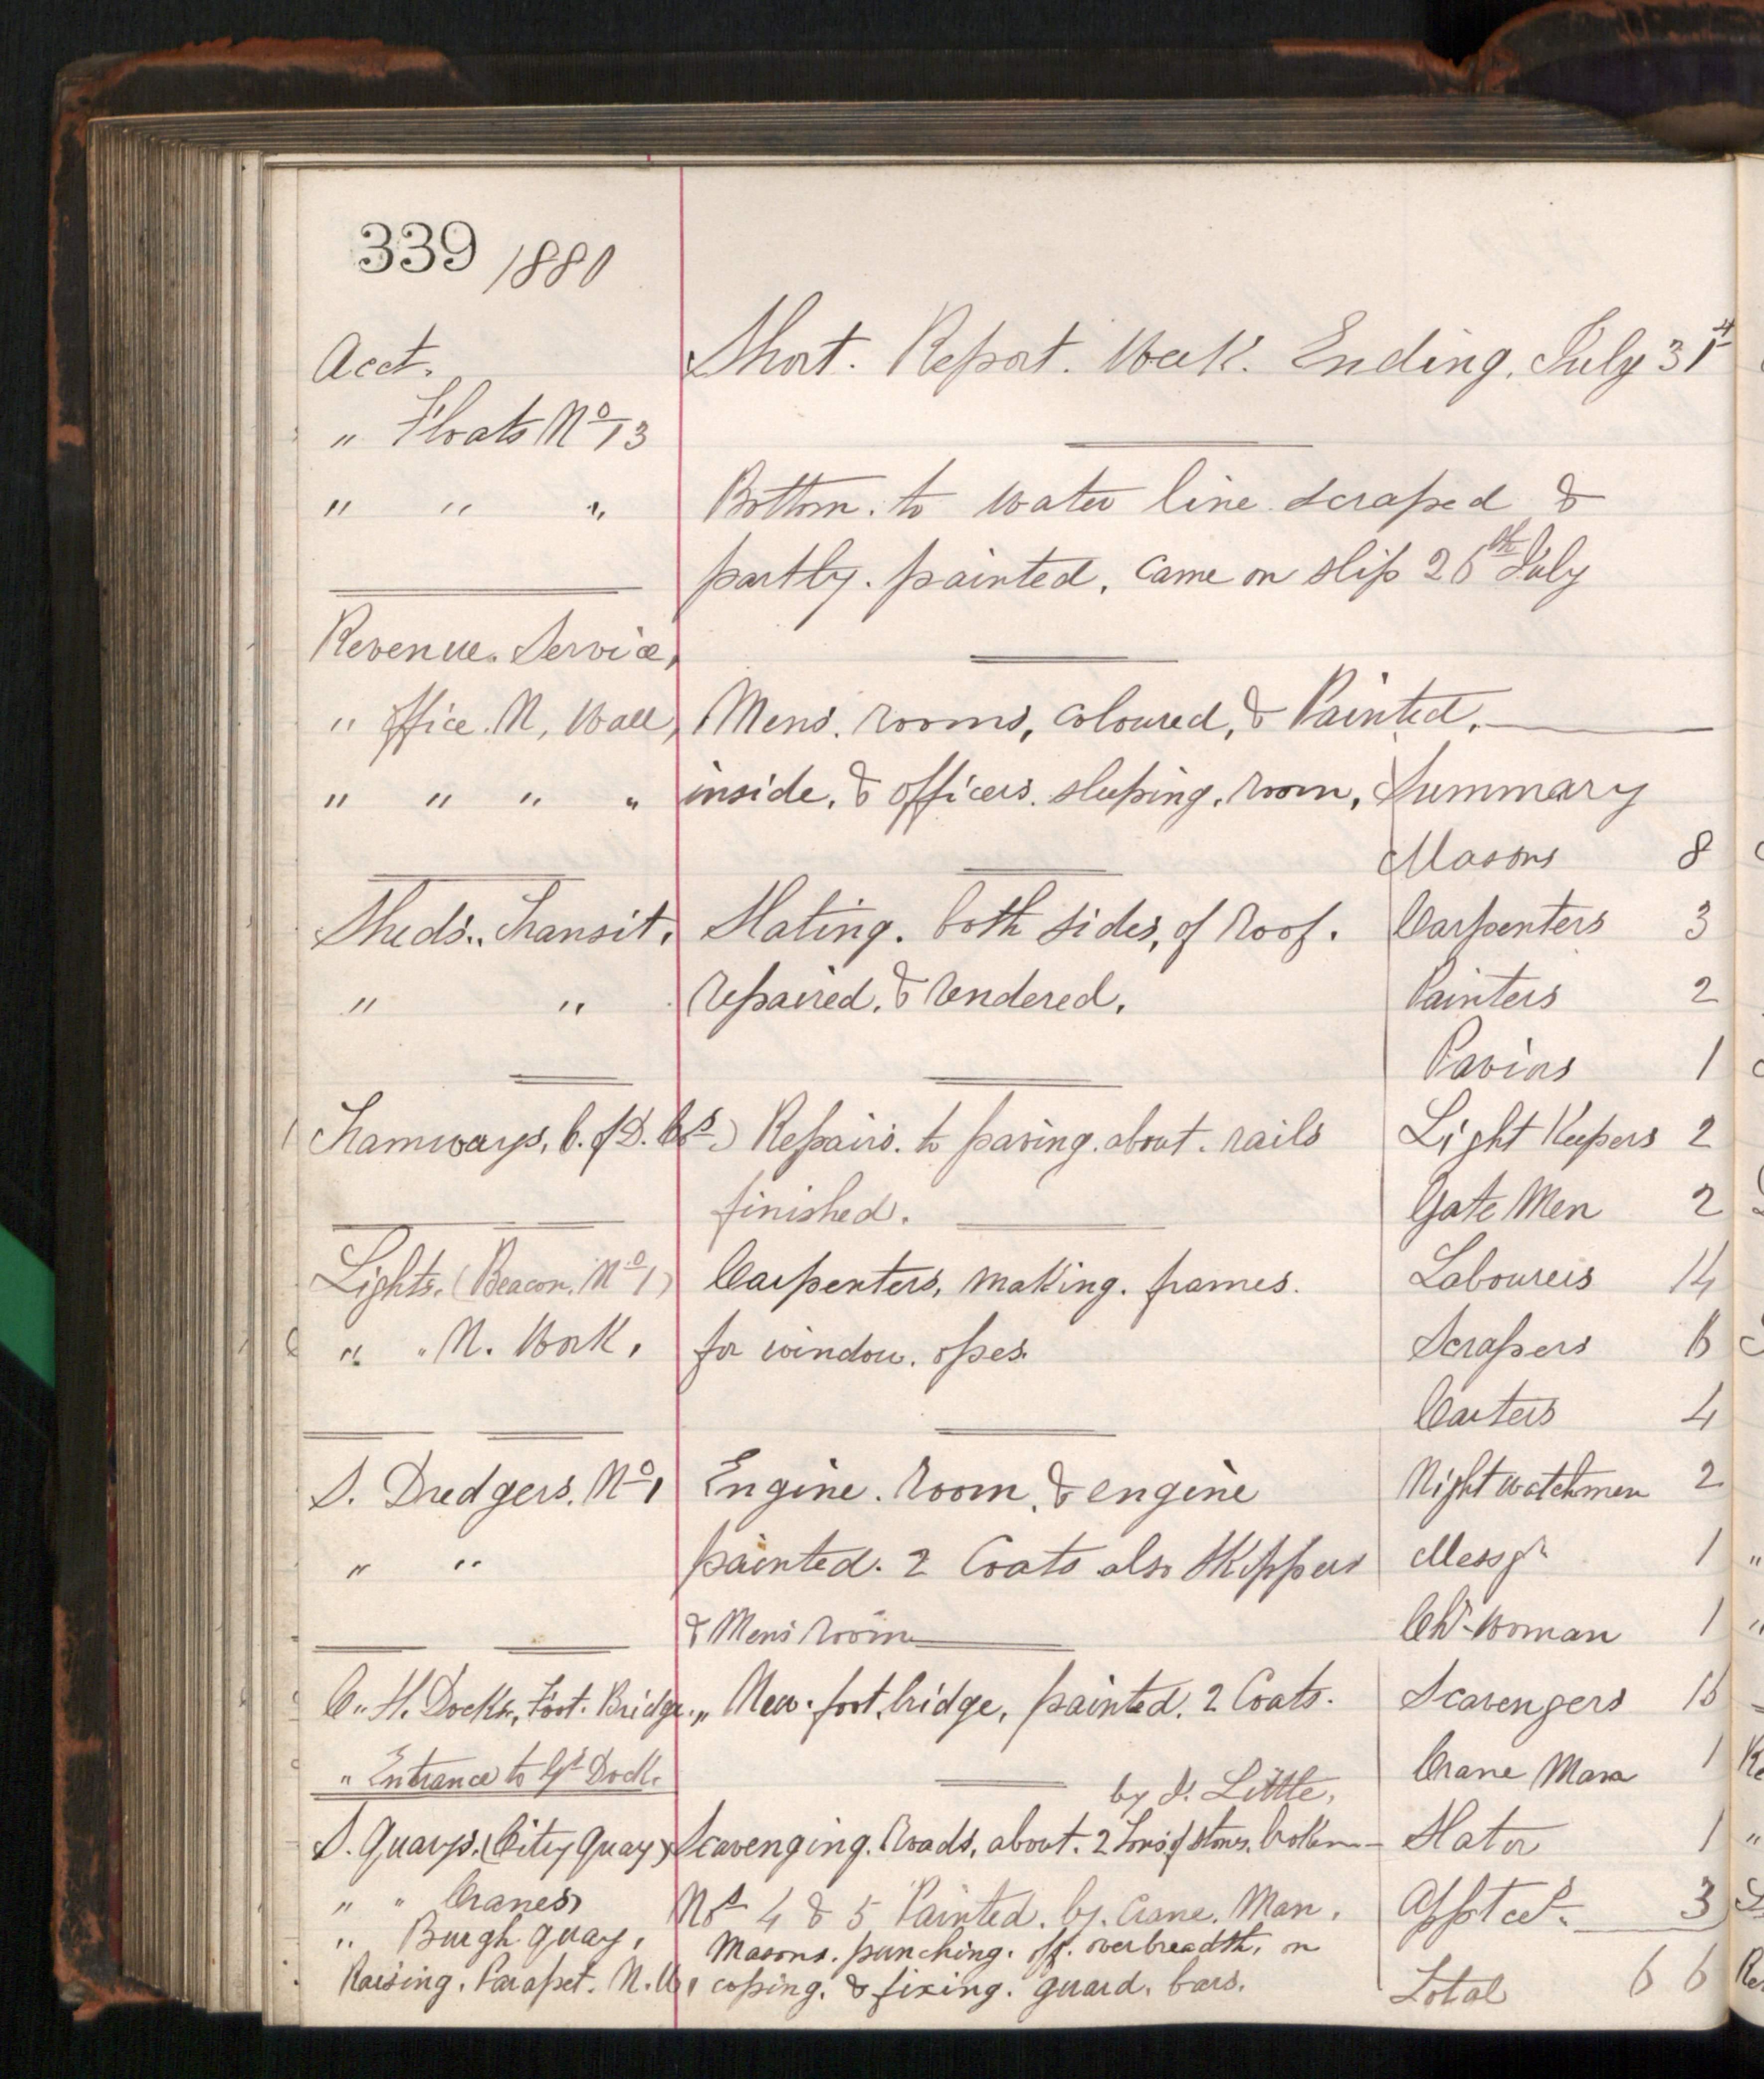 339 1880
Acct. Short. Report. Week. Ending. July 31st
" Floats No 13
" " " Bottom. to water line scraped &
partly. painted. came on slip 26th July
Revenue. Service,
" Office. N. Wall, Mens. rooms, coloured, & Painted.
" " " " inside, & officers. sleeping. room, Summary
Masons 8
Sheds. Transit. Slating. both sides, of Roof. Carpenters 3
" " repaired. & rendered. Painters 2
Paviors 1
Tramways, C. of D. Cos.) Repairs. to paving. about. rails Light Keepers 2
finished. Gate Men 2
Lights. (Beacon. No 1) Carpenters, making. frames. Labourers 14
" " N. Work, for window. opes. Scrapers 6
Carters 4
S. Dredgers. No 1 Engine. Room, & engine Night watchmen 2
" " painted. 2 Coats also Skippers Messgr 1
& Mens room Chr-woman 1
C. H. Docks, Foot. Bridge. " New. foot, bridge, painted. 2 Coats. Scavengers 16
" Entrance to Gd Dock. Crane Man 1
by J. Little,
S. Quays. (City Quay) Scavenging. Roads, about. 2 Tons of stones. broken Slator 1
" " Cranes, Nos 4 & 5 Painted. by. Crane. Man. Appt ces. 3
" Burgh Quay, Masons. punching. off. overbreadth, on
Raising. Parapet. N. W. coping. & fixing. guard. bars. Total 66